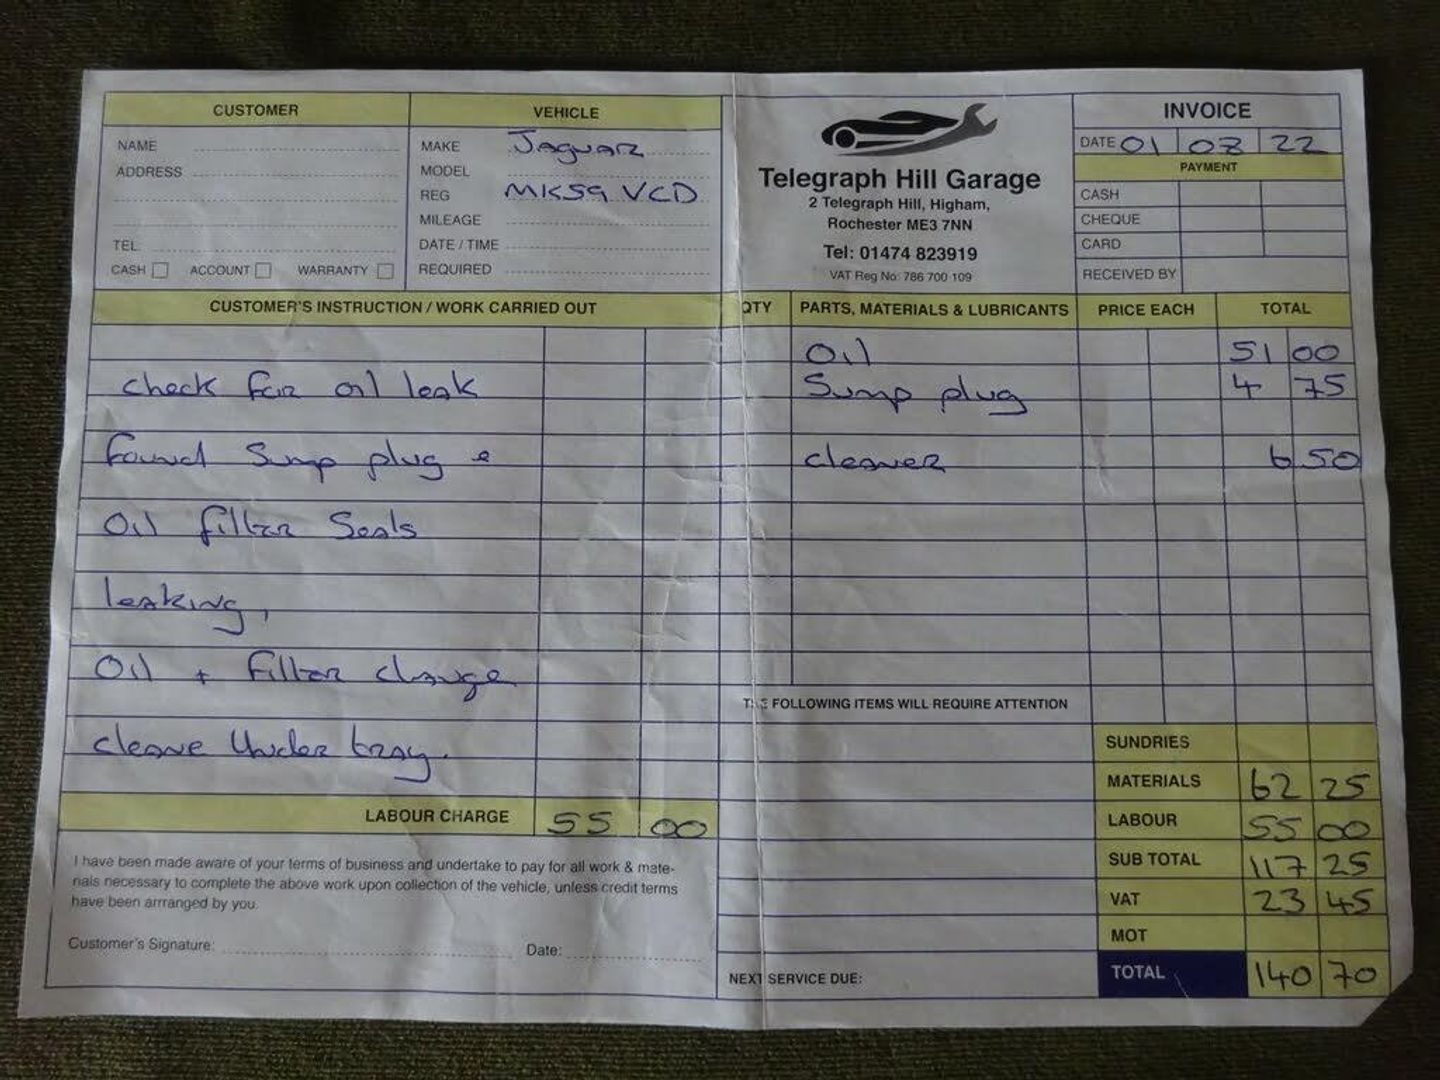 CUSTOMER
NAME
ADDRESS
TEL
CASH ACCOUNT WARRANTY
VEHICLE
MAKE Jaguar
MODEL
REG MK59 VCD
MILEAGE
DATE / TIME
REQUIRED
Telegraph Hill Garage
2 Telegraph Hill, Higham,
Rochester ME3 7NN
Tel: 01474 823919
VAT Reg No: 786 700 109
INVOICE
DATE 01 07 22
PAYMENT
CASH
CHEQUE
CARD
RECEIVED BY
CUSTOMER'S INSTRUCTION / WORK CARRIED OUT
check for oil leak
found Sump plug e
Oil filter Seals
leaking,
Oil + filter change
cleane Under tray.
LABOUR CHARGE 55 00
I have been made aware of your terms of business and undertake to pay for all work & mate-
rials necessary to complete the above work upon collection of the vehicle, unless credit terms
have been arrranged by you.
Customer's Signature: Date:
QTY PARTS, MATERIALS & LUBRICANTS PRICE EACH TOTAL
Oil 51 00
Sump plug 4 75
cleaner 6 50
THE FOLLOWING ITEMS WILL REQUIRE ATTENTION
NEXT SERVICE DUE:
SUNDRIES
MATERIALS 62 25
LABOUR 55 00
SUB TOTAL 117 25
VAT 23 45
MOT
TOTAL 140 70